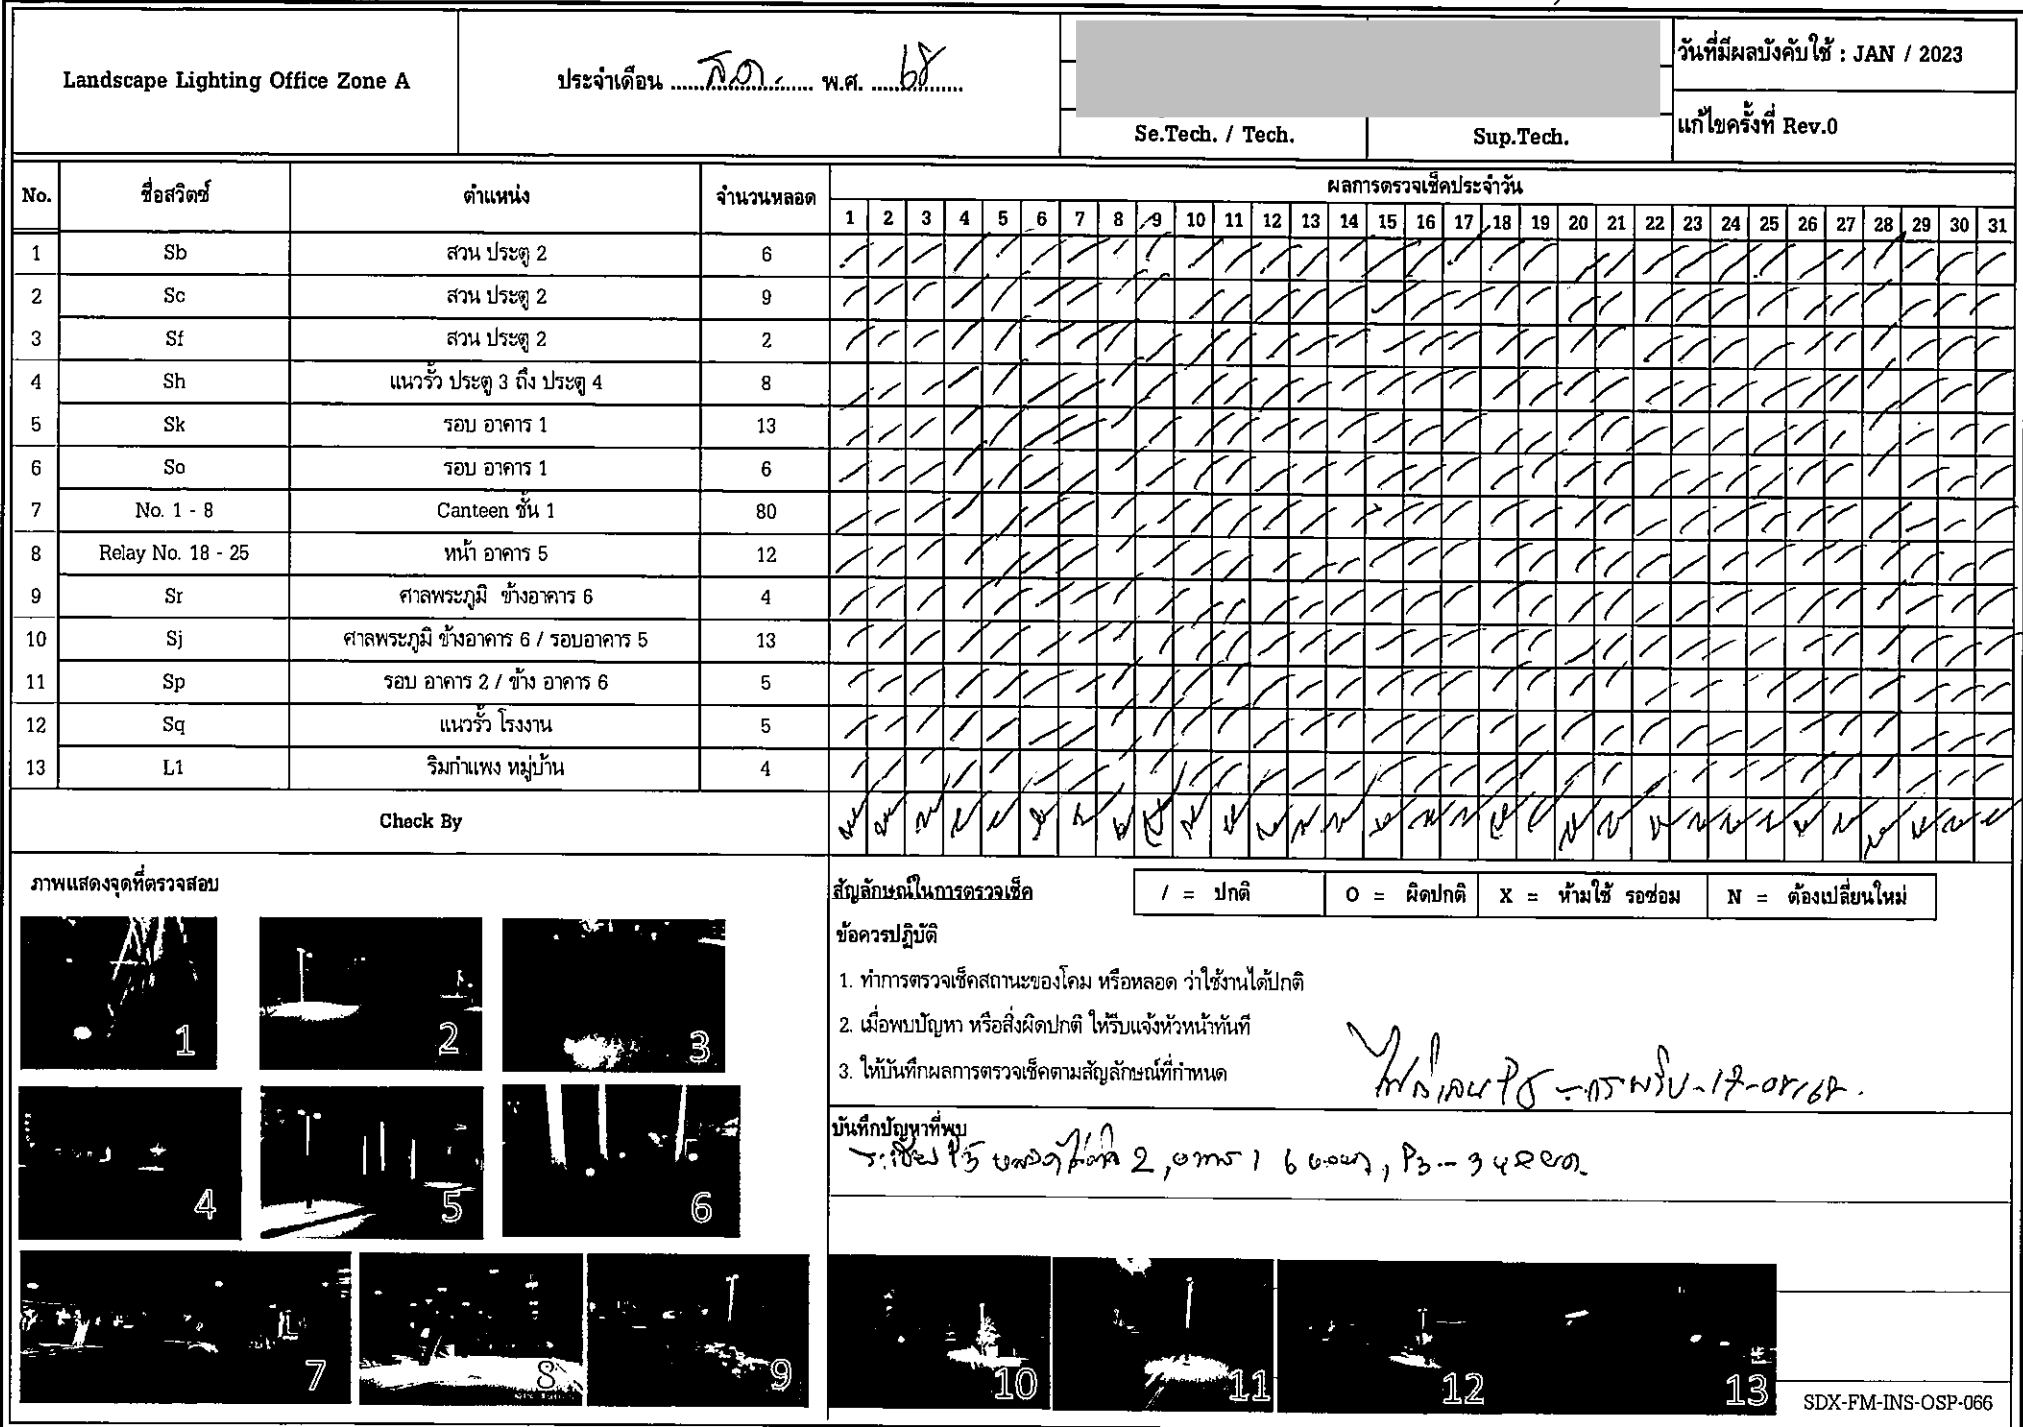 Landscape Lighting Office Zone A
ประจำเดือน ส.ค. พ.ศ. 68
Se.Tech. / Tech.
Sup.Tech.
วันที่มีผลบังคับใช้ : JAN / 2023
แก้ไขครั้งที่ Rev.0
No. ชื่อสวิตซ์ ตำแหน่ง จำนวนหลอด ผลการตรวจเช็คประจำวัน
1 2 3 4 5 6 7 8 9 10 11 12 13 14 15 16 17 18 19 20 21 22 23 24 25 26 27 28 29 30 31
1 Sb สวน ประตู 2 6
2 Sc สวน ประตู 2 9
3 Sf สวน ประตู 2 2
4 Sh แนวรั้ว ประตู 3 ถึง ประตู 4 8
5 Sk รอบ อาคาร 1 13
6 So รอบ อาคาร 1 6
7 No. 1 - 8 Canteen ชั้น 1 80
8 Relay No. 18 - 25 หน้า อาคาร 5 12
9 Sr ศาลพระภูมิ ข้างอาคาร 6 4
10 Sj ศาลพระภูมิ ข้างอาคาร 6 / รอบอาคาร 5 13
11 Sp รอบ อาคาร 2 / ข้าง อาคาร 6 5
12 Sq แนวรั้ว โรงงาน 5
13 L1 ริมกำแพง หมู่บ้าน 4
Check By
ภาพแสดงจุดที่ตรวจสอบ
1 2 3
4 5 6
7 8 9 10 11 12 13
สัญลักษณ์ในการตรวจเช็ค
/ = ปกติ O = ผิดปกติ X = ห้ามใช้ รอซ่อม N = ต้องเปลี่ยนใหม่
ข้อควรปฏิบัติ
1. ทำการตรวจเช็คสถานะของโคม หรือหลอด ว่าใช้งานได้ปกติ
2. เมื่อพบปัญหา หรือสิ่งผิดปกติ ให้รีบแจ้งหัวหน้าทันที
3. ให้บันทึกผลการตรวจเช็คตามสัญลักษณ์ที่กำหนด
บันทึกปัญหาที่พบ
SDX-FM-INS-OSP-066